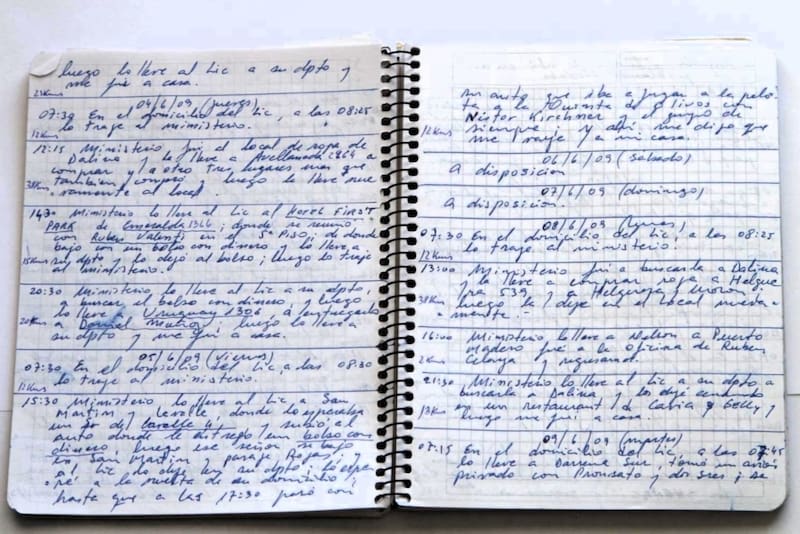 luego lo lleve al Lic a su dpto y
me fuí a casa.
23Kms
04/6/09 (jueves)
07:30 En el domicilio del Lic, a las 08:25
lo traje al ministerio.
12Kms
12:15 Ministerio fuí al local de ropa de
Dalina y la lleve a Avellaneda 2964 a
comprar y a otro tres lugares mas que
tambien compró luego la lleve nue-
vamente al local.
38Kms
1430 Ministerio lo lleve al Lic al HOTEL FIRST
PARK de Esmeralda 1366; donde se reunió
con Ruben Valenti en el 5º Piso; de donde
bajó con un bolso con dinero y lo lleve a
su dpto y lo dejó al bolso; luego lo traje
15Kms
al ministerio.
20:30 Ministerio lo lleve al Lic a su dpto,
a buscar el bolso con dinero, y luego
lo lleve a Uruguay 1306, a entregarlo
20Kms a Daniel Muñoz, luego lo lleve a
su dpto y me fuí a casa.
05/6/09 (viernes)
07:30 En el domicilio del Lic a las 08:30
11Kms lo traje al ministerio.
15:30 Ministerio lo lleve al Lic a San
Martin y Lavalle, donde lo esperaba
un Sr de Lavalle y subió al
auto donde le entregó un bolso con
dinero luego ese señor se bajó
en San Martin y paraje Rojas; y
al Lic lo deje en su dpto; lo espe-
ré a la puerta de su domicilio;
hasta que a las 17:30 paró con
su auto que iba a jugar a la pelo-
ta a la Quinta de Olivos con
Néstor Kirchner y el grupo de
siempre y ahí me dijo que
12Kms
me vaya a mi casa.
06/6/09 (sabado)
A disposicion
07/6/09 (domingo)
A disposicion.
08/6/09 (lunes)
07:30 En el domicilio del Lic; a las 08:25
lo traje al ministerio.
12Kms
13:00 Ministerio fuí a buscarla a Dalina
y la lleve a comprar ropa a Helgue
ra 539 Helguera y Morón
38Kms luego la dejé en el local nueva-
mente.
16:00 Ministerio lo lleve a Nelson a Puerto
Madero fue a la oficina de Ruben
2Kms
y regresando.
21:30 Ministerio lo lleve al Lic a su dpto a
buscarla a Dalina y los dejé cenando
13Kms en un restaurant de Cavia y Gelly y
luego me fuí a casa.
09/6/09 (martes)
07:15 En el domicilio del Lic, a las 07:45
lo lleve a Darsena Sur, tomó un avion
privado con Prousato y dos sres; se